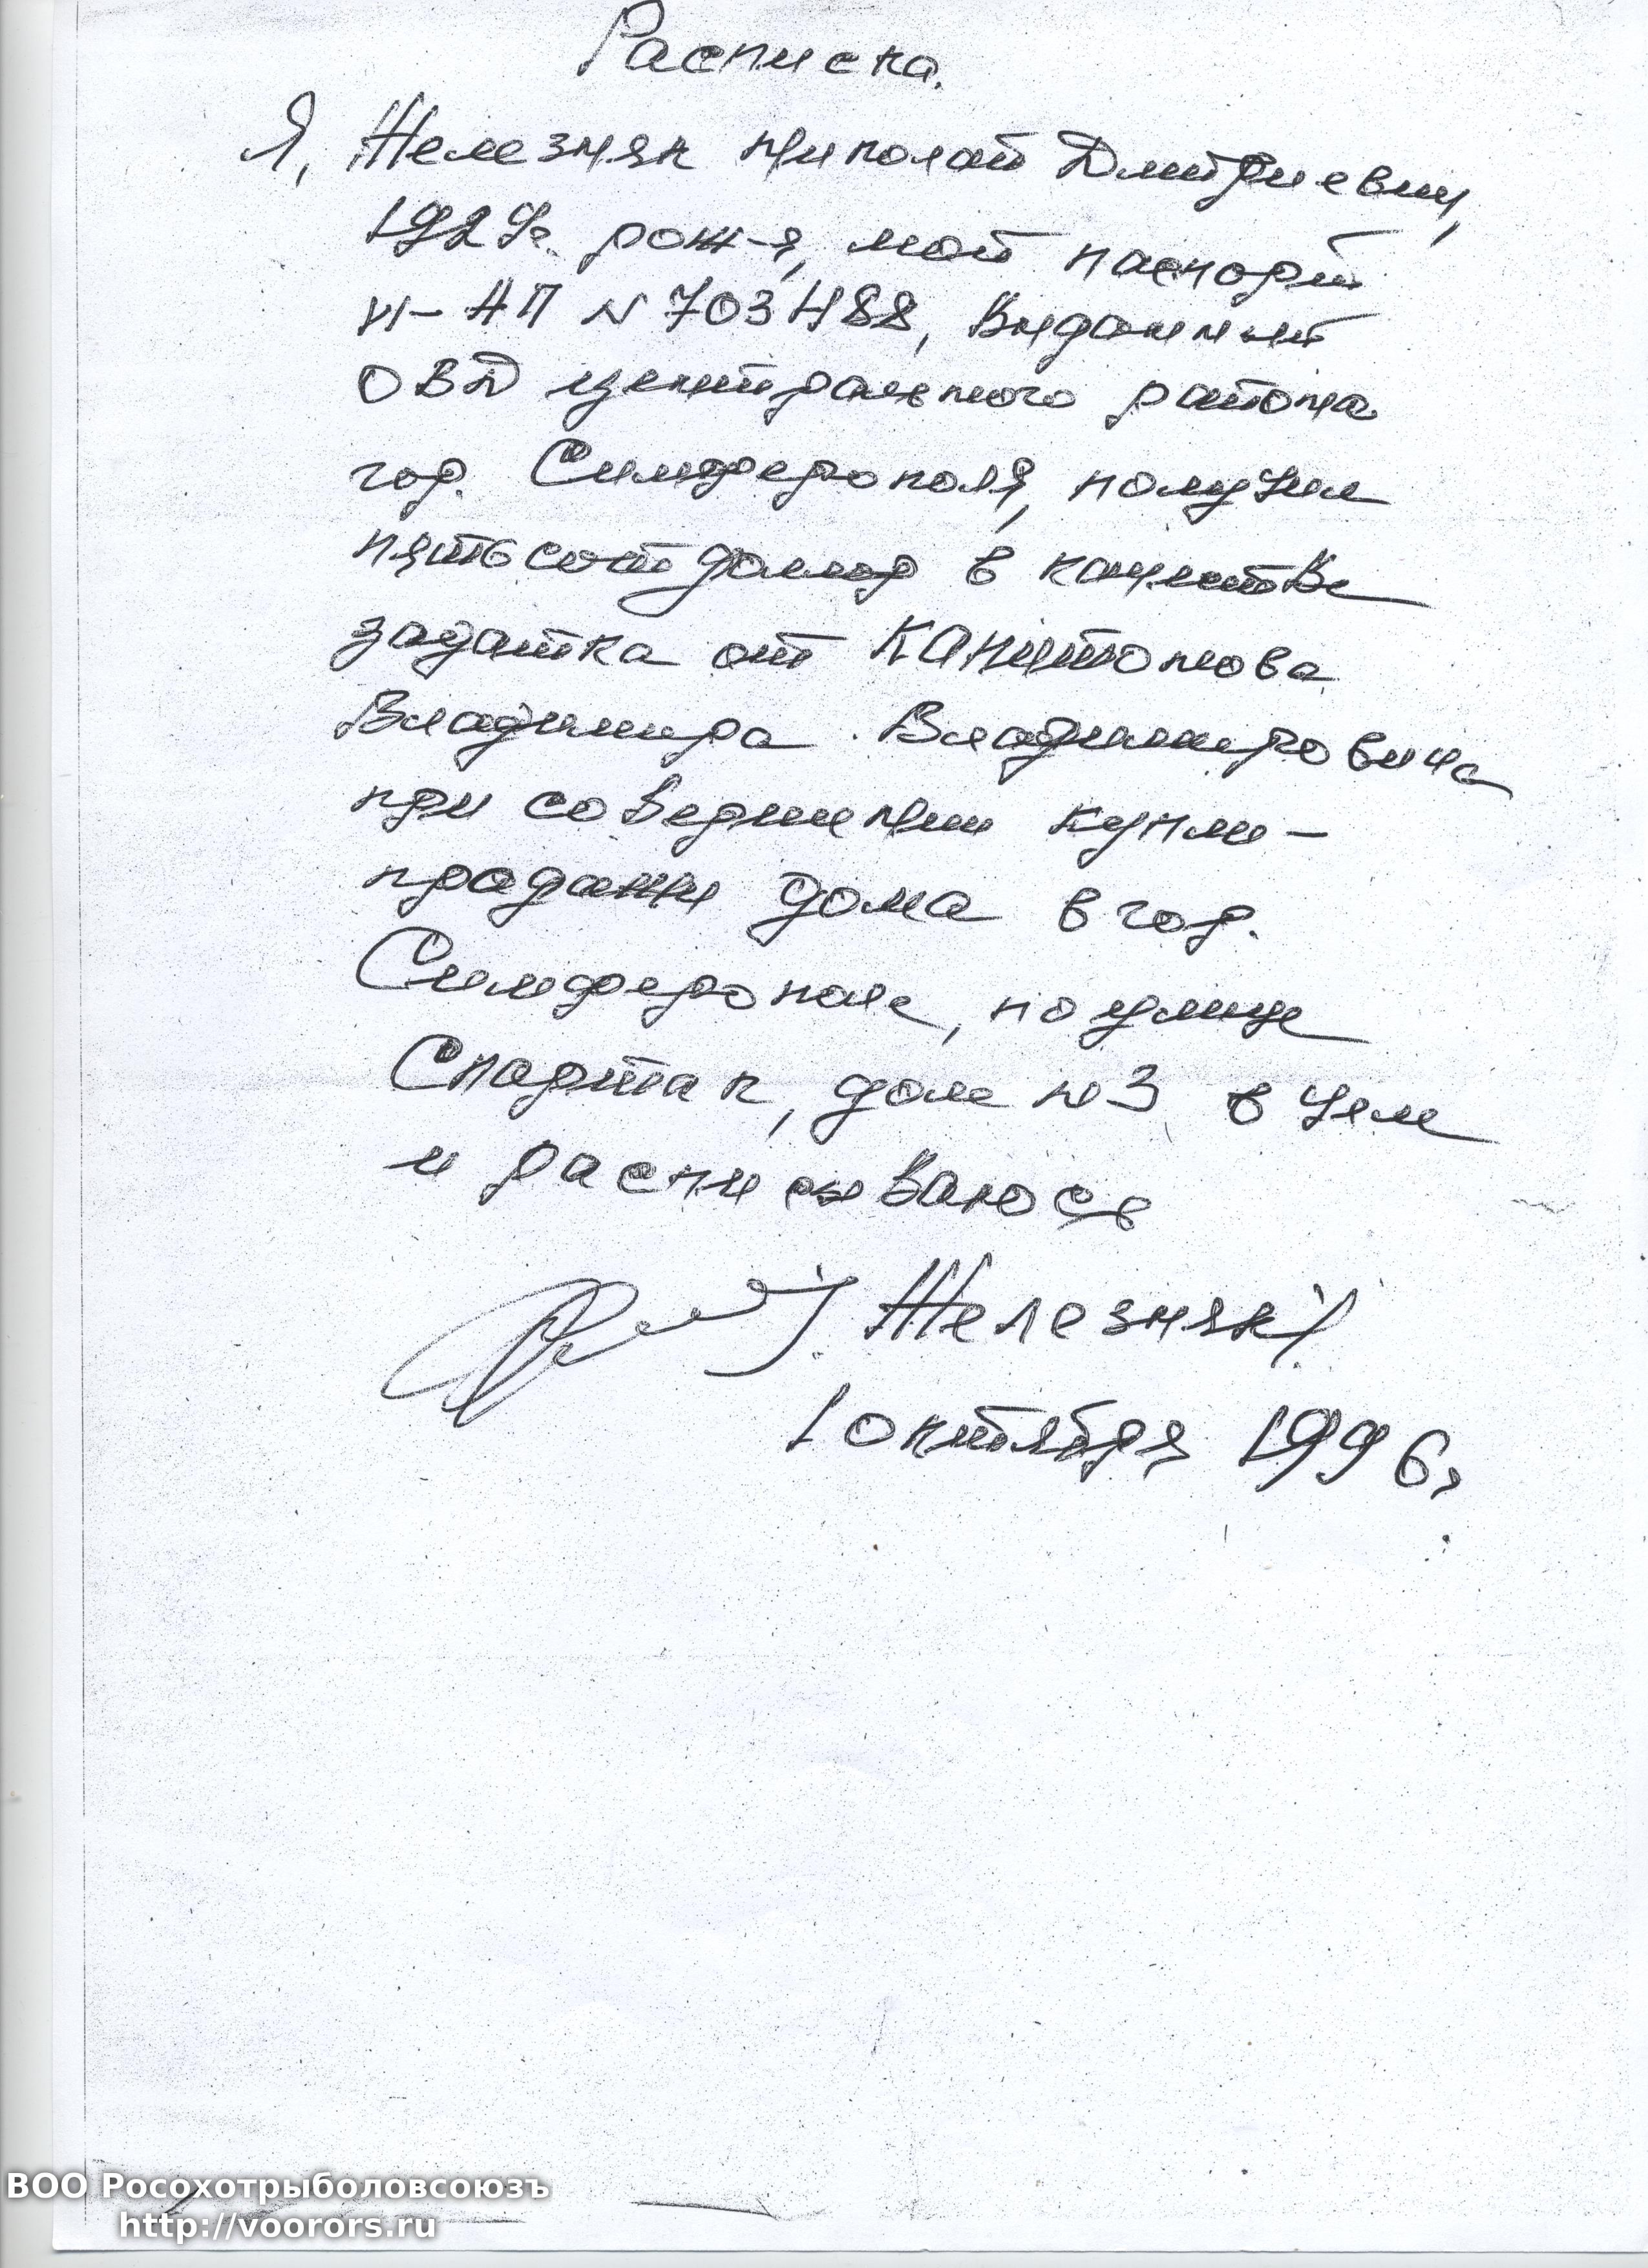 Расписка.
Я, Железняк Николай Дмитриевич,
1929г. рож-я, мой паспорт
АП N 703488, выданный
ОВД центрального района
гор. Симферополя, получил
пятьсот доллар в качестве
задатка от Капитонова
Владимира Владимировича
при совершении купли-
продажи дома в гор.
Симферополе, по улице
Спартак, дом N3 в чем
и расписываюсь
/Железняк/
1 октября 1996г
ВОО Росохотрыболовсоюзъ
http://voorors.ru